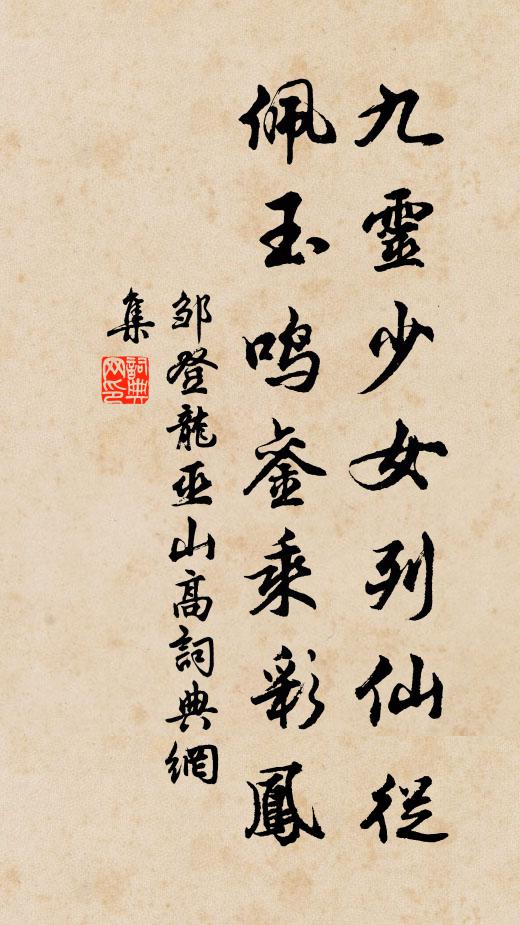 九靈少女列仙從
佩玉鳴銮乘彩鳳
邹登龍巫山高詞典網
集
詞典
网印